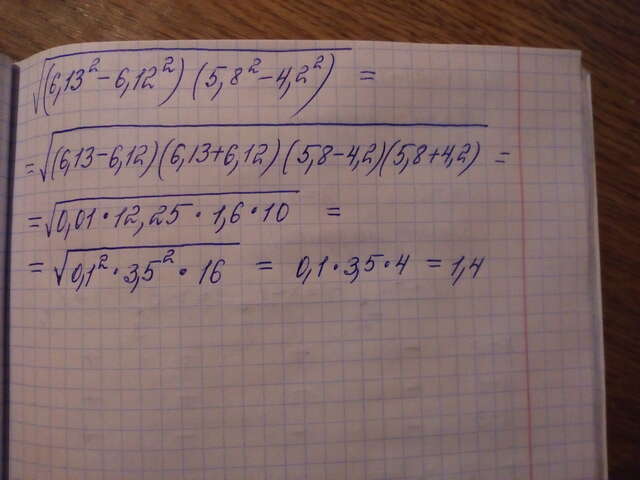 √(6,13² − 6,12²) (5,8² − 4,2²) =
= √(6,13 − 6,12)(6,13 + 6,12)(5,8 − 4,2)(5,8 + 4,2) =
= √0,01 · 12,25 · 1,6 · 10 =
= √0,1² · 3,5² · 16 = 0,1 · 3,5 · 4 = 1,4